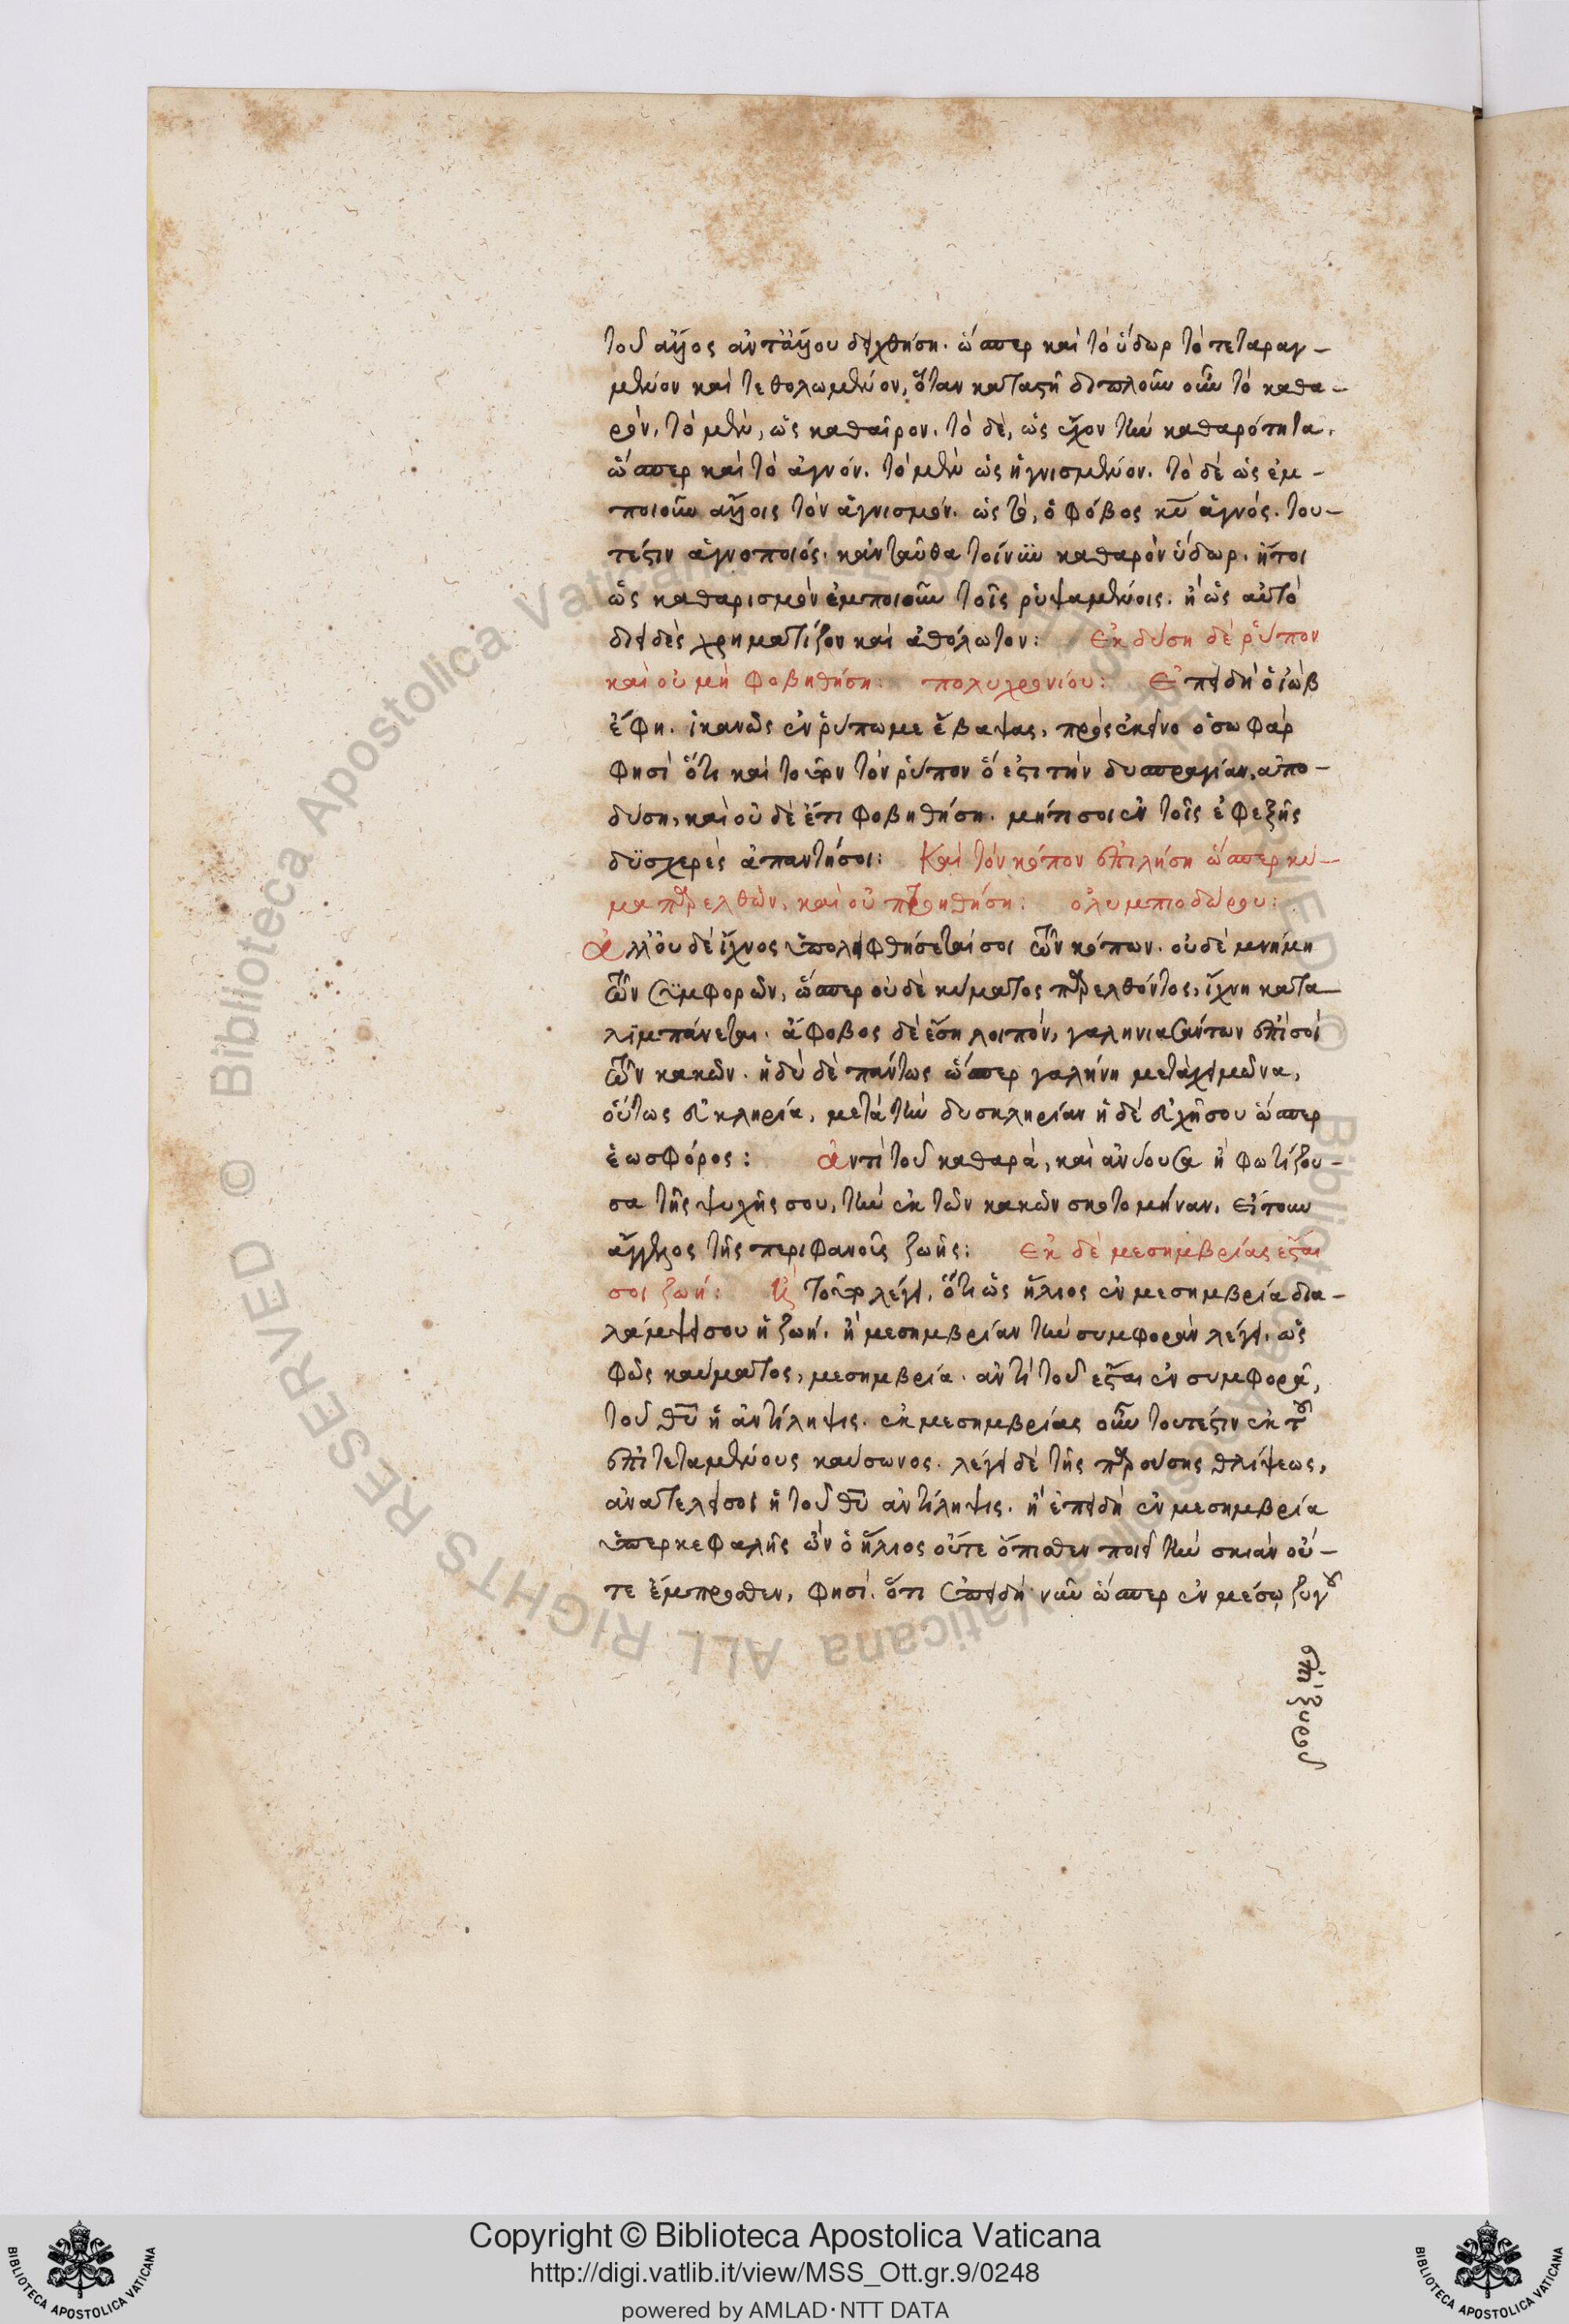 τοῦ αἴγος ἀνταύγου δειχθήση. ὥσπερ καὶ τὸ ὕδωρ τὸ τεταραγ-
μένον καὶ τεθολωμένον, ὅταν καταστῆ διπλοῦν οὖν τὸ καθα-
ρόν, τὸ μὲν, ὡς καθαῖρον. τὸ δὲ, ὡς ἔχον τὴν καθαρότητα.
ὥσπερ καὶ τὸ ἁγνόν. τὸ μὲν ὡς ἡγνισμένον. τὸ δὲ ὡς ἐμ-
ποιοῦν τὸν ἁγνισμόν. ὡς τὸ, ὁ φόβος κυ ἁγνός. του-
τέστιν ἁγνοποιός. κἀνταῦθα τοίνϋν καθαρὸν ὕδωρ. ἤτοι
ὡς καθαρισμὸν ἐμποιοῦν τοῖς ῥυψαμένοις. ἢ ὡς αὐτὸ
διειδὲς χρηματίζον καὶ ἀθόλωτον: Ἐκδύση δὲ ῥύπον
καὶ οὐ μὴ φοβηθήση: πολυχρονίου: Ἐπειδὴ ὁ ἰὼβ
ἔφη. ἱκανῶς ἐν ῥύπω με ἔβαψας, πρὸς ἐκεῖνο ὁ σωφὰρ
φησὶ ὅτι καὶ τοῦτον τὸν ῥύπον ὅ ἐστι τὴν δυσπραγίαν, ἀπο-
δύση, καὶ οὐδὲ ἔτι φοβηθήση. μήτι σοι ἐν τοῖς ἐφεξῆς
δϋσχερὲς ἀπαντήσοι: Καὶ τὸν κόπον ἐπιλήση ὥσπερ κύ-
μα παρελθὸν, καὶ οὐ πτοηθήση: ὀλυμπιοδώρου:
Ἀλλ' οὐδὲ ἴχνος ὑπολειφθήσεταί σοι τῶν κόπων. οὐδὲ μνήμη
τῶν σϋμφορῶν, ὥσπερ οὐδὲ κύματος παρελθόντος, ἴχνη κατα
λϊμπάνεται. ἄφοβος δὲ ἔση λοιπὸν, γαληνιασάντων ἐπὶ σοὶ
τῶν κακῶν. ἡδὺ δὲ πάντως ὥσπερ γαλήνη μετὰ χειμῶνα,
οὕτως εὐκληρία, μετὰ τὴν δυσκληρίαν ἡ δὲ εὐχή σου ὥσπερ
ἑωσφόρος: ἀντὶ τοῦ καθαρὰ, καὶ ἀνύουσα ἢ φωτίζου-
σα τῆς ψυχῆς σου, τὴν ἐκ τῶν κακῶν σκοτομήναν, εἴτουν
ἄγγελος τῆς περιφανοῦς ζωῆς: Ἐκ δὲ μεσημβρίας ἔσται
σοι ζωή: Ἢ τοῦτο λέγει, ὅτι ὡς ἥλιος ἐν μεσημβρία δια-
λάμψει σου ἡ ζωή. ἢ μεσημβρίαν τὴν συμφορὰν λέγει. ὡς
φῶς καύματος, μεσημβρία. ἀντὶ τοῦ ἔσται ἐν συμφορᾶ,
τοῦ θυ ἡ ἀντίληψις. ἐκ μεσημβρίας οὖν τουτέστιν ἐκ τοῦ
ἐπιτεταμένους καύσωνος. λέγει δὲ τῆς παρούσης θλίψεως,
ἀνατελεῖ σοι ἡ τοῦ θυ ἀντίληψις. ἢ ἐπειδὴ ἐν μεσημβρία
ὑπερκεφαλῆς ὢν ὁ ἥλιος οὔτε ὄπισθεν ποιεῖ τὴν σκιὰν οὔ-
τε ἔμπροσθεν, φησὶ. ὅτι ἐπειδὴ νῦν ὥσπερ ἐν μέσῳ ζυγοῦ
ἐπὶ ξυροῦ
Biblioteca Apostolica Vaticana ALL RIGHTS RESERVED ©
Copyright © Biblioteca Apostolica Vaticana
http://digi.vatlib.it/view/MSS_Ott.gr.9/0248
powered by AMLAD·NTT DATA
BIBLIOTECA APOSTOLICA VATICANA
BIBLIOTECA APOSTOLICA VATICANA